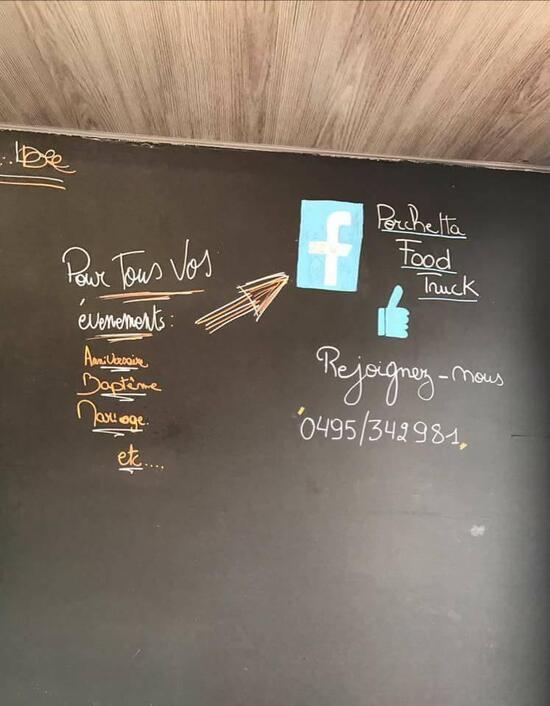 ...IDée
Pour Tous Vos
évenements:
Anniversaire
Baptême
Mariage.
etc....
f
Porchetta
Food
Truck
Rejoignez-nous
0495/342981.